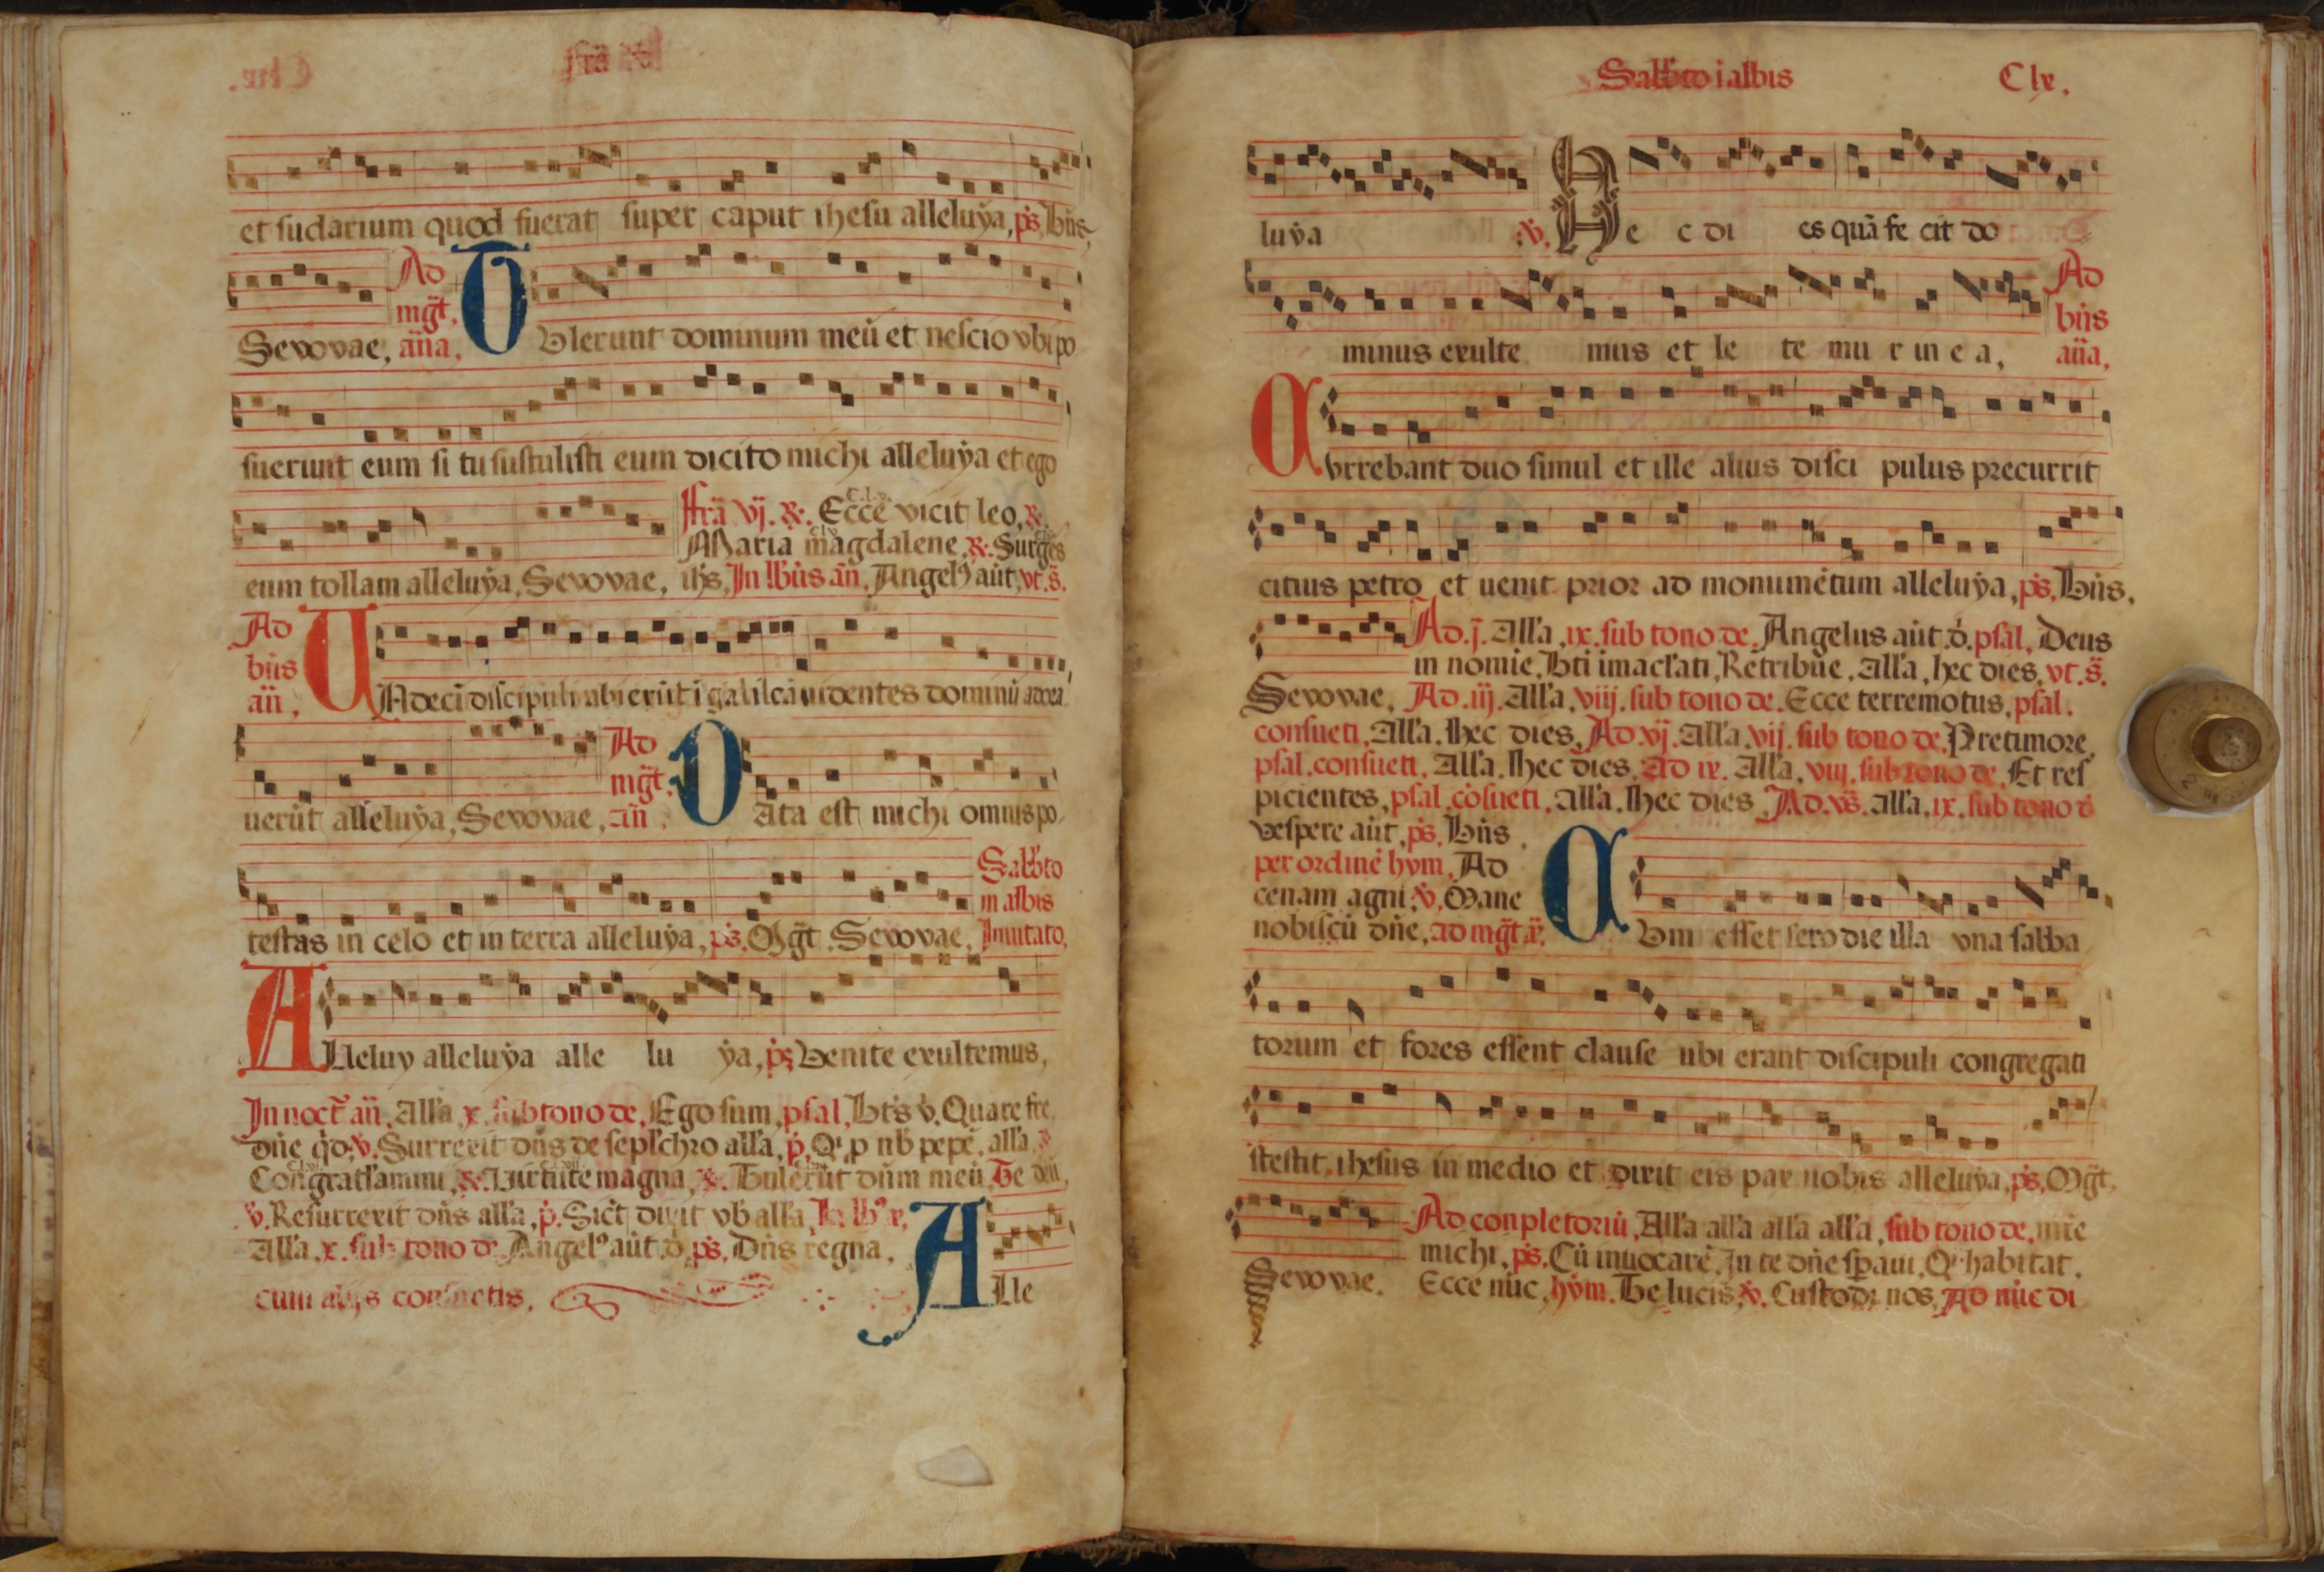 frã
et sudarium quod fuerat super caput ihesu alleluÿa, p̃s, Bñs,
Ad
mg̃t,
Sevovae, añа,
Vlerunt dominum meũ et nescio vbi po
suerunt eum si tu sustulisti eum dicito michi alleluÿa et ego
frã vj. ℟. Ecce vicit leo, ℟.
Maria magdalene, ℟. Surgẽs
eum tollam alleluÿa, Sevovae, ihs, In lb̃us añ, Angelꝰ aũt, vt. s̃.
Ad
bñs
añ,
U Ndecĩ discipuli abierũt ĩ galileã uidentes dominũ adora
Ad
mg̃t,
uerũt alleluÿa, Sevovae, añ,
D Ata est michi omnis po
Sabb̃to
in albis
testas in celo et in terra alleluÿa, p̃s. Mg̃t Sevovae, Inuitato,
A Lleluy alleluÿa alle lu ÿa, p̃s, Venite exultemus,
In noct̃ añ, All'a, x. sub tono de, Ego sum, psal, Bt̃s v̓. Quare fre
dñe q̃o, ℣. Surrexit dñs de sepl'chro all'a, p̃. Qⁱ p nb̃ pepẽ. all'a
Congratl'amini, ℟. Virtute magna, ℟. Tulerũt dñm meũ, Te deũ,
℣. Resurrexit dñs all'a, p̃. Sic̃t dixit vb̃ all'a,
All'a. x. sub tono de Angelꝰ aũt, d̃, p̃s, Dñs regna,
cum alijs consuetis,
A Lle
Sabb̃to ĩ albis Clx.
luÿa ℣. He c di es quã fe cit do
Ad
bñs
minus exulte mus et le te mu r in e a, aña,
C Vrrebant duo simul et ille alius disci pulus precurrit
citius petro et uenit prior ad monumẽtum alleluÿa, p̃s, Bñs,
Ad. j̃. All'a, ix. sub tono de, Angelus aũt d̃. psal, Deus
in nomie, Bti imacl'ati, Retribue, All'a, hec dies, vt. s̃.
Sevovae, Ad. iij. All'a, viij. sub tono de. Ecce terremotus, psal.
consueti, All'a. hec dies, Ad vj. All'a. vij. sub tono de, Pre timore,
psal. consueti, All'a. hec dies, Ad ix. All'a, viij. sub tono de, Et res
picientes, psal cõsueti, All'a. hec dies, Ad. vs̃. All'a. ix. sub tono d̃
vespere aũt, p̃s, Bñs,
per ordinẽ hym, Ad
cenam agni, ℣. Mane
nobiscũ dñe, ad mg̃t.
C Vm esset sero die illa vna sabba
torum et fores essent clause ubi erant discipuli congregati
stestit, ihesus in medio et dixit eis pax uobis alleluÿa, p̃s, Mg̃t,
Ad conpletoriũ, All'a all'a all'a all'a, sub tono de, mĩe
michi, p̃s, Cũ inuocarẽ, In te dñe sp̃aui, Qⁱ habitat,
Sevovae. Ecce nũc, hÿm. Te lucis, ℣. Custodi nos, Ad nũc di